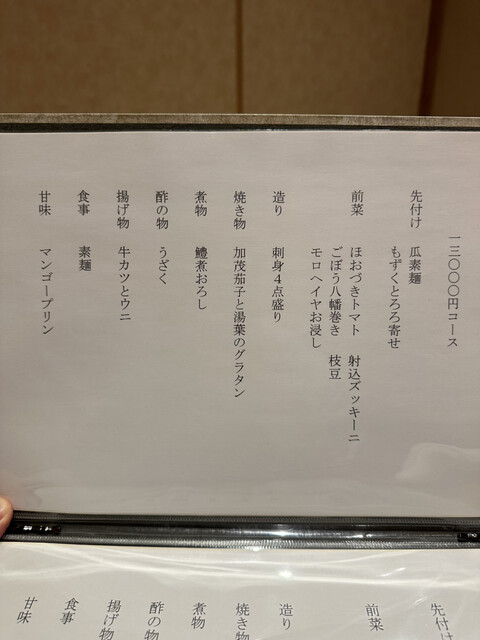 一三〇〇〇円コース
先付け　瓜素麺
もずくとろろ寄せ
前菜　ほおづきトマト　射込ズッキーニ
ごぼう八幡巻き　枝豆
モロヘイヤお浸し
造り　刺身４点盛り
焼き物　加茂茄子と湯葉のグラタン
煮物　鱧煮おろし
酢の物　うざく
揚げ物　牛カツとウニ
食事　素麺
甘味　マンゴープリン
先付け
前菜
造り
焼き物
煮物
酢の物
揚げ物
食事
甘味